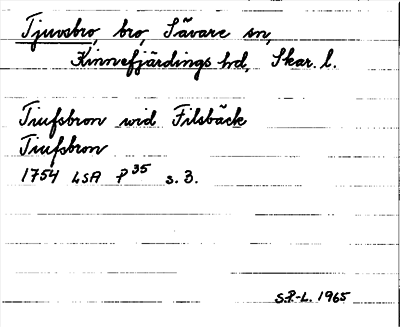 Tjuvsbro, bro, Sävare sn,
Kinnefjärdings hd, Skar. l.
Tiufsbron wid Filsbäck
Tiufsbron
1754 LSA P 35 s. 3.
S.P.-L. 1965